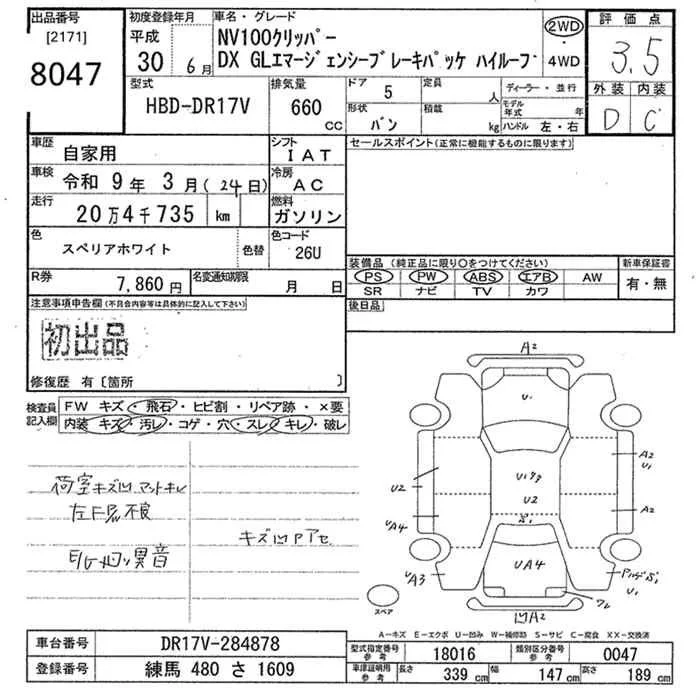 出品番号
[2171]
8047
初度登録年月
平成
30年 6月
車名・グレード
NV100クリッパー
DX GLエマージェンシーブレーキパッケ ハイルーフ
2WD
・
4WD
評価点
3.5
外装 内装
D C
型式
HBD-DR17V
排気量
660
CC
ドア 5
形状 バン
定員 人
積載 kg
ディーラー・並行
モデル年式 年
ハンドル 左・右
車歴 自家用
シフト IAT
車検 令和 9年 3月(24日)
冷房 AC
走行 20万4千735 km
燃料 ガソリン
色 スペリアホワイト 色替
色コード 26U
R券 7,860円
名変通知期限 月 日
セールスポイント(正常に機能するものに限ります)
装備品(純正品に限り○をつけてください)
新車保証書
PS PW ABS エアB AW
SR ナビ TV カワ
有・無
後日品
注意事項申告欄(不具合内容等は具体的に記入して下さい)
初出品
修復歴 有〔箇所 〕
検査員記入欄
FW キズ・飛石・ヒビ割・リペア跡・×要
内装 キズ・汚レ・コゲ・穴・スレ・キレ・破レ
荷室キズ凹マットキレ
左F内不良
E/G廻リ異音
キズ凹アセ
A2
U.
A2
U1
U2
U2
A2
UA4
S1
UA4
UA3
U1
ワレ
凹A2
スペア
A-キズ E-エクボ U-凹み W-補修跡 S-サビ C-腐食 XX-交換済
車台番号 DR17V-284878
登録番号 練馬 480 さ 1609
型式指定番号 参考 18016
類別区分番号 参考 0047
車庫証明用 参考 長さ 339 cm 幅 147 cm 高さ 189 cm